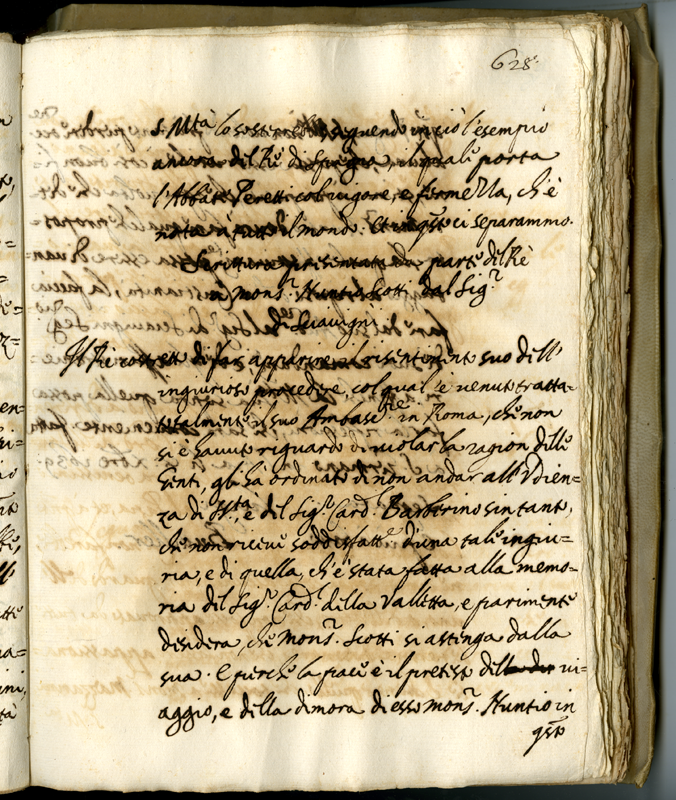 628.
S. Mtà lo sostenesse seguendo in ciò l'esempio
ancora del Rè di Spagna, il quale porta
l'Abbate Peretti col vigore, e fermezza, ch'è
noto à tutto il mondo. Et in qsto ci separammo.
Scrittura presentata da parte del Rè
à Mons.r Nuntio Scotti dal Sig.r
di Sciavigni
Il Rè costretto di far apparire il risentimento suo dell'
ingiurioso procedere, col qual è venuto tratta-
to il suo Ambasc.re in Roma, che non
si è havuto riguardo di violar la ragion delle
Genti, gli ha ordinato di non andar all'Udien-
za di S. Stà, e del Sig.r Card.l Barberino sin tanto,
che non riceve soddisfatt.e d'una tale ingiu-
ria, e di quella, ch'è stata fatta alla memo-
ria del Sig.r Card.l della Valletta, e parimente
desidera, che Mons.r Scotti si astenga dalla
sua. E perche la pace è il pretesto del vi-
aggio, e della dimora di esso Mons.r Nuntio in
qsto